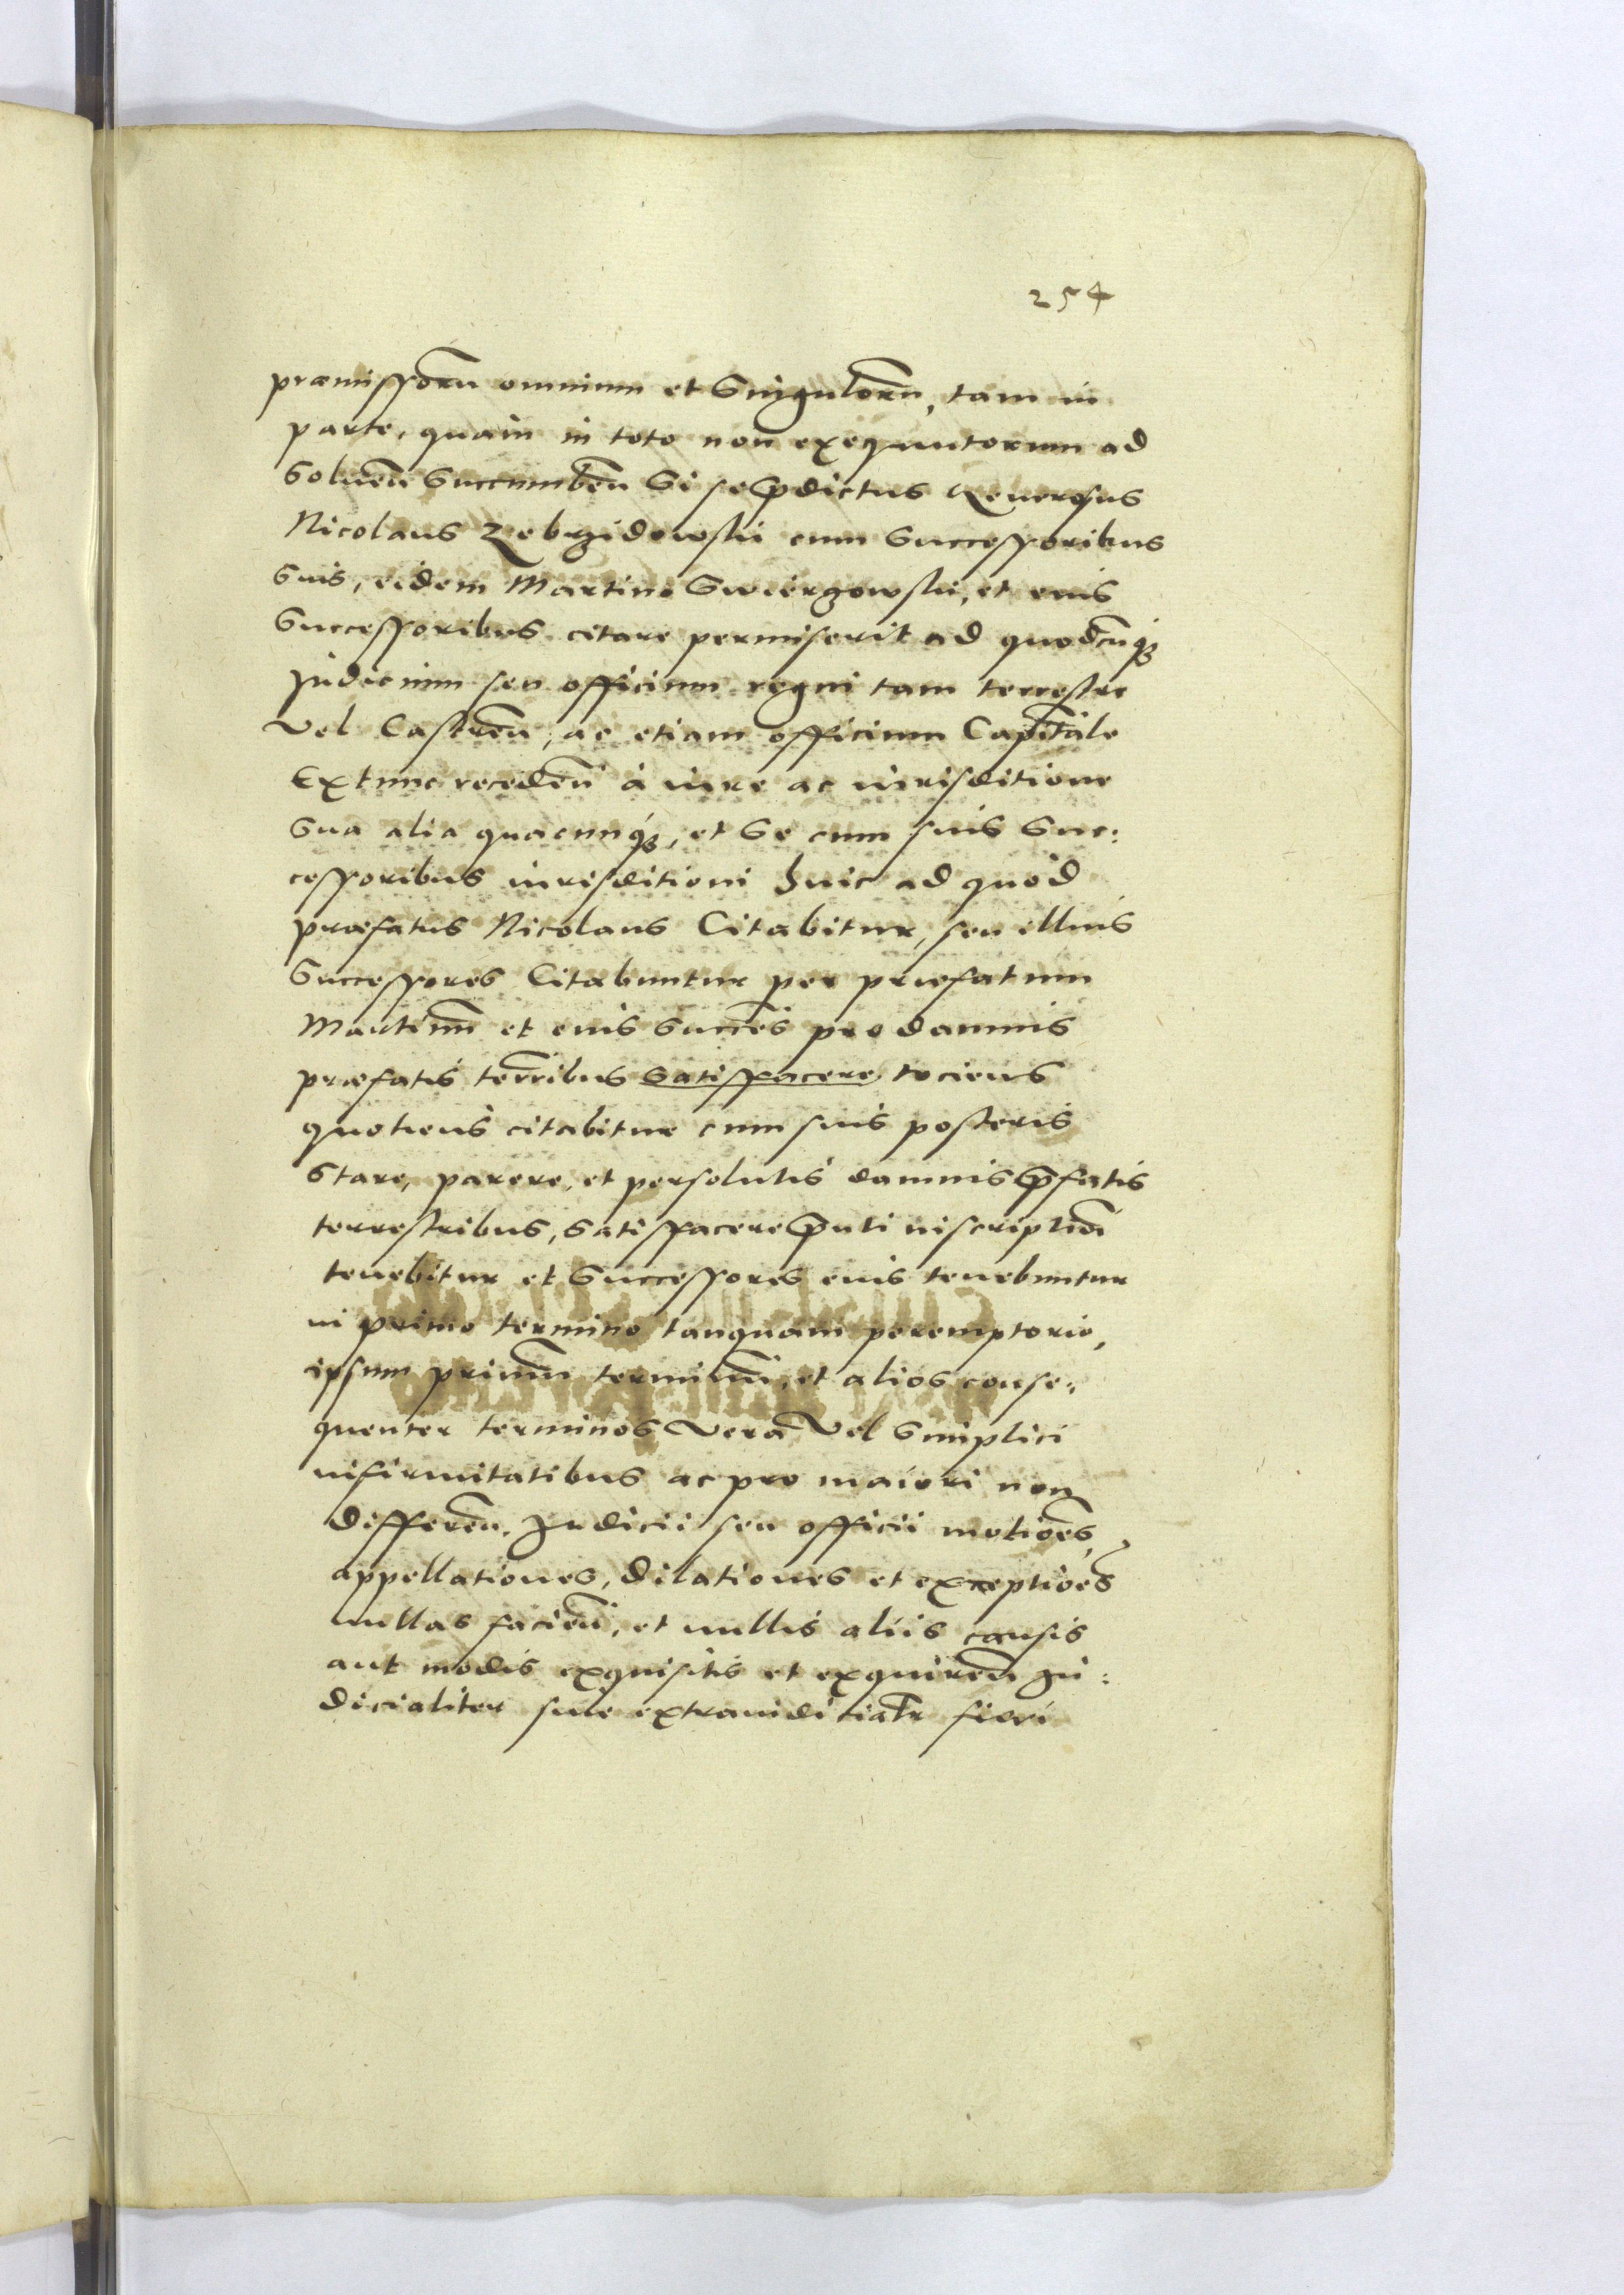 254
præmissorū omnium et Singulorū, tam in
parte, quàm in toto non exequutorum ad
Soluen̄ Succumben̄ Si sep̄dictus Generosus
Nicolaus Zebrzidowski cum Successoribus
Suis, eidem Martino Swiergowski, et eius
Successoribus citare permiserit ad quodcūq3
Judicium seu officium regni tam terrestre
Vel Castren̄, ac etiam officium Capitāle
Extunc receden̄ à iure ac iurisditione
Sua alia quacunq3, et Se cum suis Suc:
cessoribus iurisditioni huic ad quod
præfatus Nicolaus Citabitur, seu illius
Successores Citabuntur per præfatum
Martinū et eius Succes̄ pro damnis
præfatis terr̄ibus Satisfacere tociens
quotiens citabitur cum suis posteris
Stare, parere, et persolutis damnis p̄fatis
terrestribus, Satisfacere p̄nti inscriptiōi
tenebitur et Successores eius tenebuntur
in primo termino tanquam peremptorio,
ipsum primū terminū, et alios conse:
quenter terminos Verā Vel Simplici
infirmitatibus ac pro maiori non
differen̄. Judicii seu officii motiōes,
appellationes, dilationes et exceptiōes
nullas facien̄, et nullis aliis causis
aut modis exquisitis et exquiren̄ Ju:
dicialiter siue extraiuditialr̄ fieri